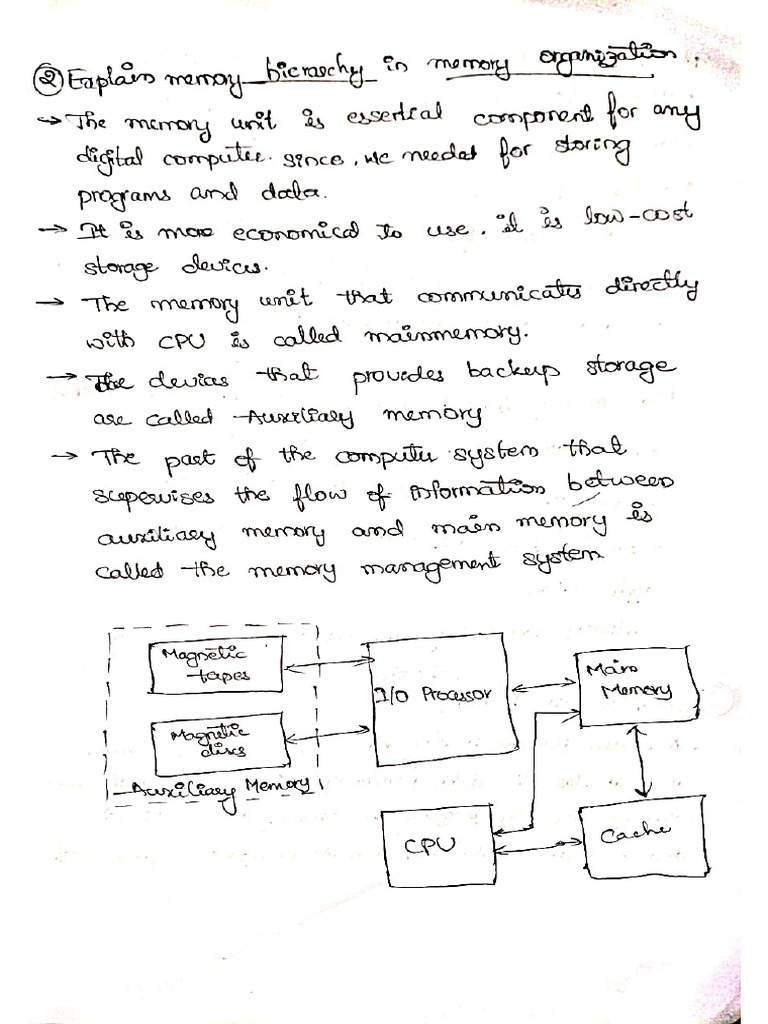 ② Explain memory hierarchy in memory organization.
→ The memory unit is essertial component for any
digital computer. Since, we needed for storing
programs and data.
→ It is more economical to use, it is low-cost
storage devices.
→ The memory unit that communicates directly
with CPU is called mainmemory.
→ The devices that provides backup storage
are called Auxiliary memory
→ The part of the computer system that
supervises the flow of information between
auxiliary memory and main memory is
called the memory management system
Magnetic
tapes
I/O Processor
Main
Memory
Magnetic
discs
Auxiliary Memory
CPU
Cache